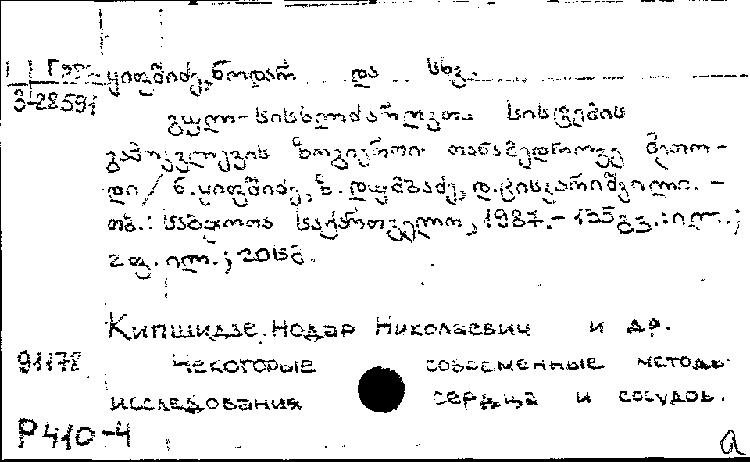 ყიფშიძე, ნოდარ და სხვ.
3-28591
გულ-სისხლძარღვთა სისტემის
გამოკვლევის ზოგიერთი თანამედროვე მეთო-
დი / ნ. ყიფშიძე, ზ. დუმბაძე, დ. ცისკარიშვილი. –
თბ.: საბჭოთა საქართველო, 1987. – 135 გვ.: ილ.;
2 ფ. ილ.; 20 სმ.
Кипшидзе, Нодар Николаевич и др.
91178 Некоторые современные методы
исследования сердца и сосудов.
Р410-4
a